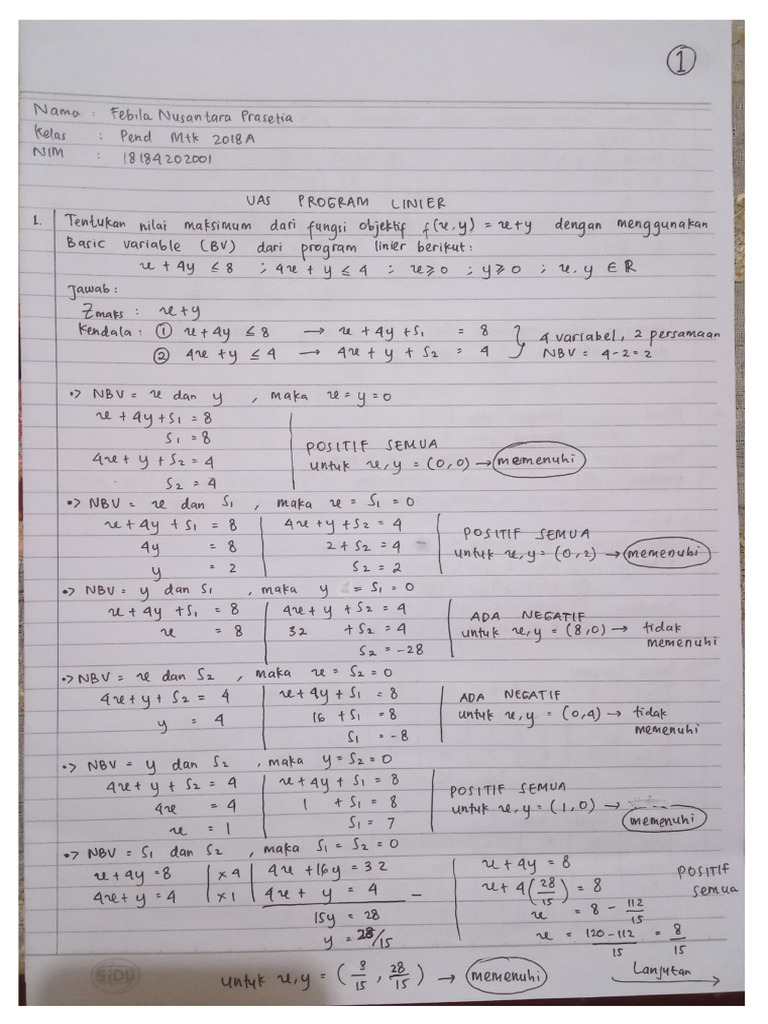 1
Nama : Febila Nusantara Prasetia
Kelas : Pend Mtk 2018A
NIM : 18184202001
UAS PROGRAM LINIER
1. Tentukan nilai maksimum dari fungsi objektif f(x,y) = x+y dengan menggunakan
Basic variable (BV) dari program linier berikut:
x + 4y ≤ 8 ; 4x + y ≤ 4 ; x ≥ 0 ; y ≥ 0 ; x, y ∈ ℝ
Jawab:
Zmaks : x+y
Kendala : ① x + 4y ≤ 8 → x + 4y + S₁ = 8
② 4x + y ≤ 4 → 4x + y + S₂ = 4
4 variabel, 2 persamaan
NBV = 4-2 = 2
•> NBV = x dan y , maka x = y = 0
x + 4y + S₁ = 8
S₁ = 8
4x + y + S₂ = 4
S₂ = 4
POSITIF SEMUA
untuk x,y = (0,0) → memenuhi
•> NBV = x dan S₁ , maka x = S₁ = 0
x + 4y + S₁ = 8
4y = 8
y = 2
4x + y + S₂ = 4
2 + S₂ = 4
S₂ = 2
POSITIF SEMUA
untuk x,y = (0,2) → memenuhi
•> NBV = y dan S₁ , maka y = S₁ = 0
x + 4y + S₁ = 8
x = 8
4x + y + S₂ = 4
32 + S₂ = 4
S₂ = -28
ADA NEGATIF
untuk x,y = (8,0) → tidak
memenuhi
•> NBV = x dan S₂ , maka x = S₂ = 0
4x + y + S₂ = 4
y = 4
x + 4y + S₁ = 8
16 + S₁ = 8
S₁ = -8
ADA NEGATIF
untuk x,y = (0,4) → tidak
memenuhi
•> NBV = y dan S₂ , maka y = S₂ = 0
4x + y + S₂ = 4
4x = 4
x = 1
x + 4y + S₁ = 8
1 + S₁ = 8
S₁ = 7
POSITIF SEMUA
untuk x,y = (1,0) →
memenuhi
•> NBV = S₁ dan S₂ , maka S₁ = S₂ = 0
x + 4y = 8 | x4 | 4x + 16y = 32
4x + y = 4 | x1 | 4x + y = 4 -
15y = 28
y = 28/15
x + 4y = 8
x + 4(28/15) = 8
x = 8 - 112/15
x = 120-112/15 = 8/15
POSITIF
semua
untuk x,y = (8/15, 28/15) → memenuhi
Lanjutan →
SIDU